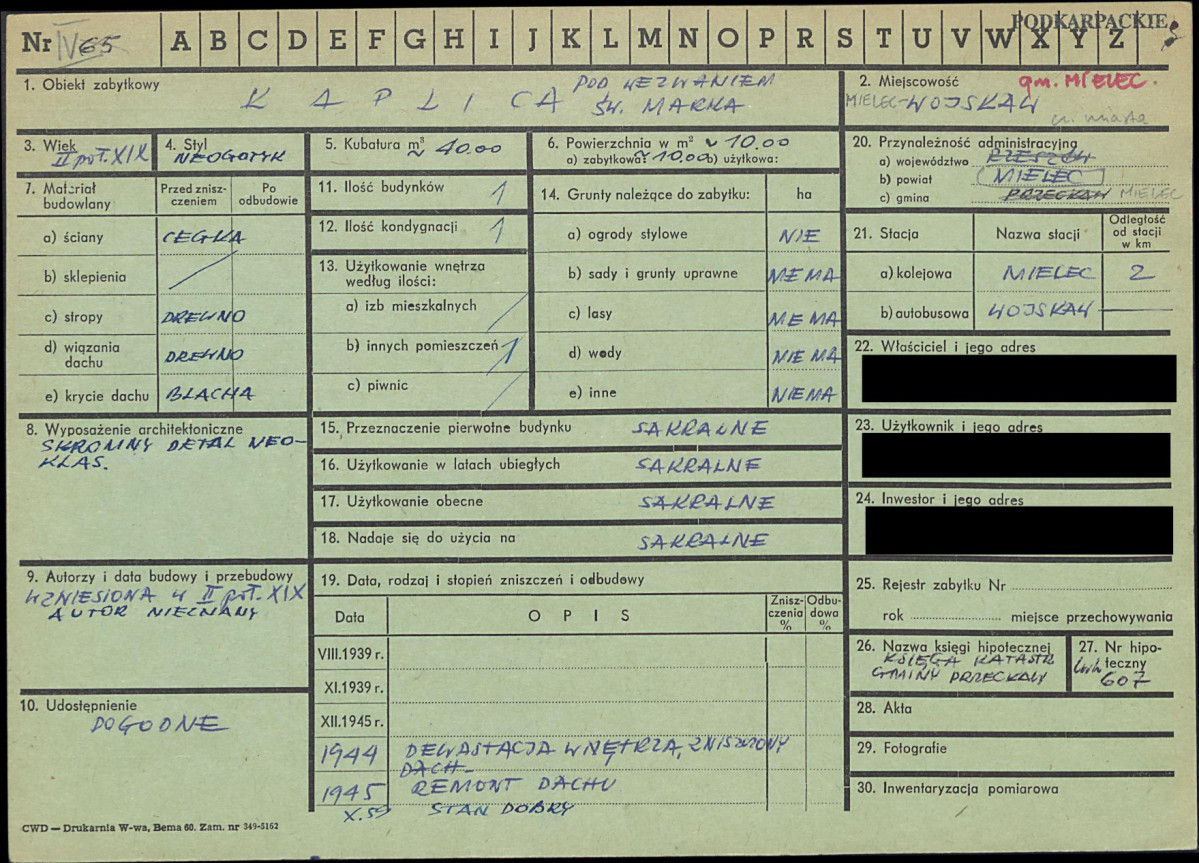 PODKARPACKIE
Nr IV 65 A B C D E F G H I J K L M N O P R S T U V W X Y Z
1. Obiekt zabytkowy
KAPLICA POD WEZWANIEM
ŚW. MARKA
2. Miejscowość gm. MIELEC.
MIELEC-WOJSKAW
cz. miasta
3. Wiek
II poł. XIX
4. Styl
NEOGOTYK
5. Kubatura m³ ~ 40.00
6. Powierzchnia w m² ~ 10.00
a) zabytkowa 10.00 b) użytkowa:
7. Materiał budowlany
Przed zniszczeniem
Po odbudowie
a) ściany CEGŁA
b) sklepienia
c) stropy DREWNO
d) wiązania dachu DREWNO
e) krycie dachu BLACHA
8. Wyposażenie architektoniczne
SKROMNY DETAL NEO-
KLAS.
9. Autorzy i data budowy i przebudowy
WZNIESIONA W II poł. XIX
AUTOR NIEZNANY
10. Udostępnienie
DOGODNE
11. Ilość budynków 1
12. Ilość kondygnacji 1
13. Użytkowanie wnętrza
według ilości:
a) izb mieszkalnych
b) innych pomieszczeń 1
c) piwnic
14. Grunty należące do zabytku: ha
a) ogrody stylowe NIE
b) sady i grunty uprawne NIEMA
c) lasy NIEMA
d) wody NIEMA
e) inne NIEMA
15. Przeznaczenie pierwotne budynku SAKRALNE
16. Użytkowanie w latach ubiegłych SAKRALNE
17. Użytkowanie obecne SAKRALNE
18. Nadaje się do użycia na SAKRALNE
19. Data, rodzaj i stopień zniszczeń i odbudowy
Data
O P I S
Zniszczenia %
Odbudowa %
VIII.1939 r.
XI.1939 r.
XII.1945 r.
1944 DEWASTACJA WNĘTRZA, ZNISZCZONY
DACH
1945 REMONT DACHU
X.59 STAN DOBRY
20. Przynależność administracyjna
a) województwo RZESZÓW
b) powiat MIELEC
c) gmina PRZECŁAW MIELEC
21. Stacja
Nazwa stacji
Odległość od stacji w km
a) kolejowa MIELEC 2
b) autobusowa WOJSKAW
22. Właściciel i jego adres
23. Użytkownik i jego adres
24. Inwestor i jego adres
25. Rejestr zabytku Nr
rok miejsce przechowywania
26. Nazwa księgi hipotecznej
KSIĘGA KATASTR
GMINY PRZECŁAW
27. Nr hipoteczny
Lwh 607
28. Akta
29. Fotografie
30. Inwentaryzacja pomiarowa
CWD — Drukarnia W-wa, Bema 60. Zam. nr 349-5162